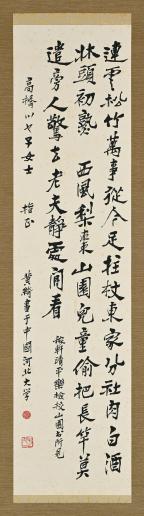 連雲松竹萬事從今足拄杖東家分社肉白酒
床頭初熟 西風梨棗山園兒童偷把長竿莫
遣旁人驚去老夫靜處閒看
稼軒清平樂檢校山園書所見
高橋 女士 指正
黃綺書于中國河北大學